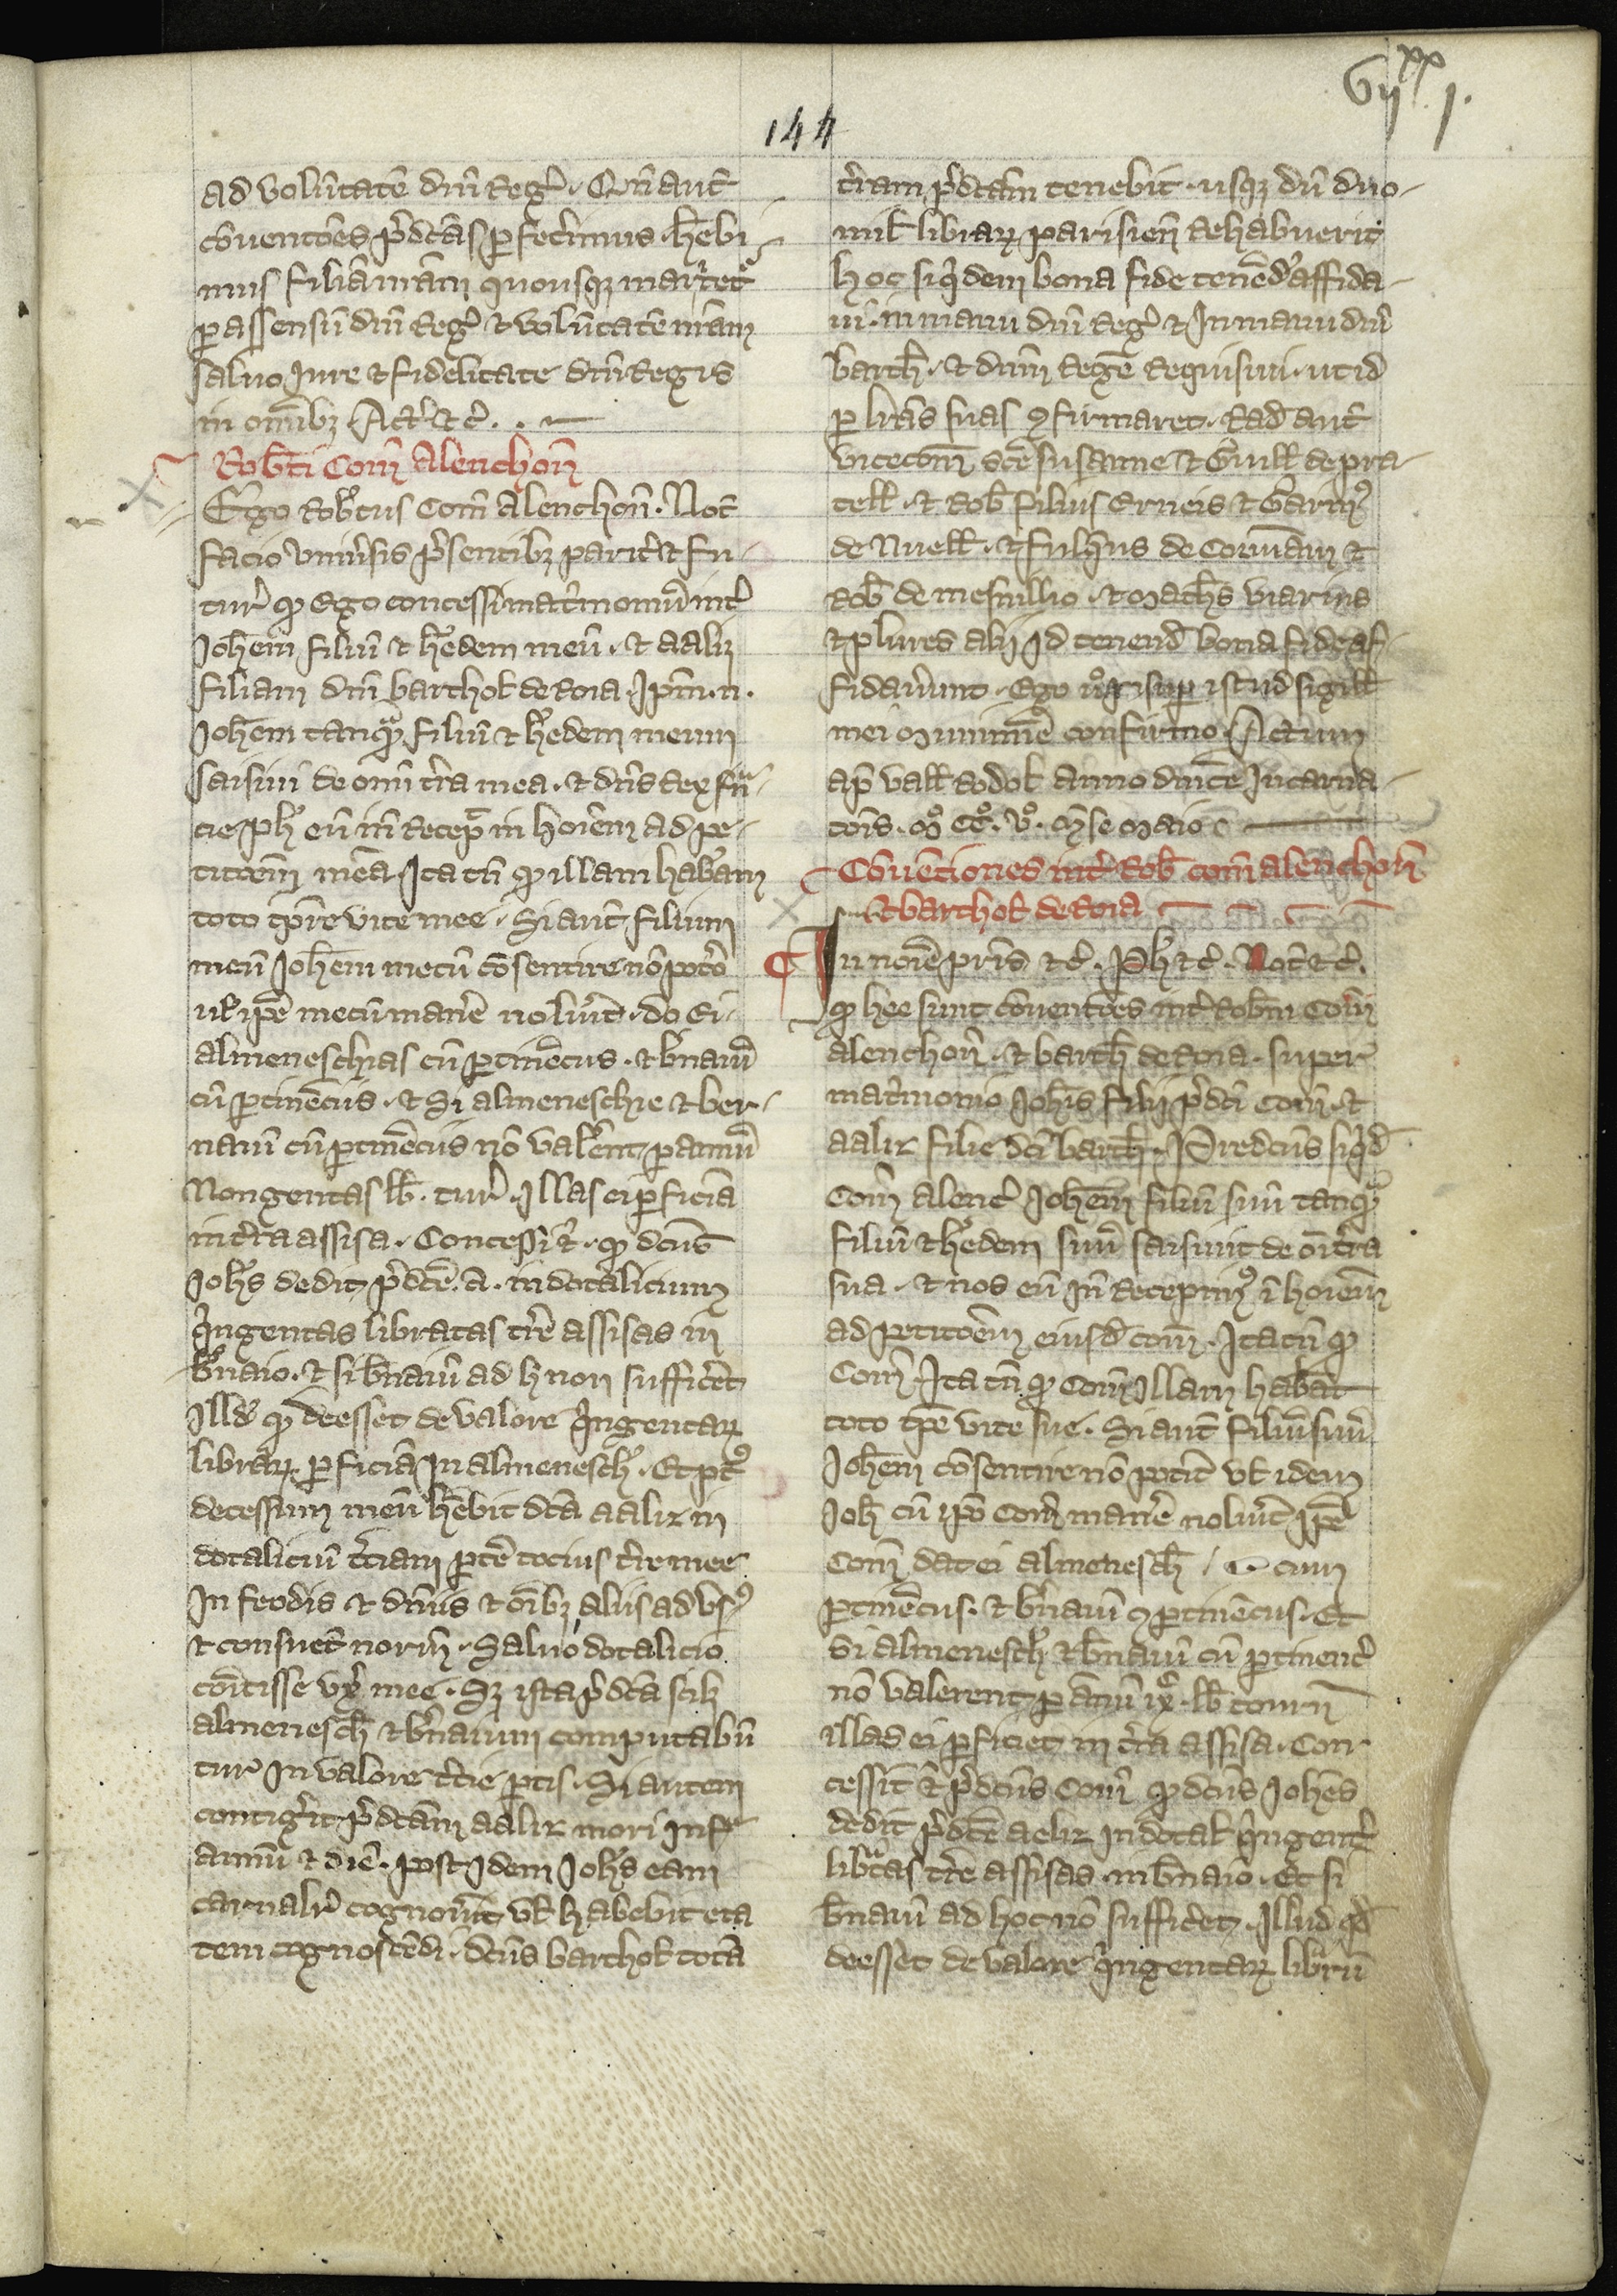 Gijxx j.
144
ad volūtatē dn̄i Reg̾. Qn̄ aut̄
cōuentōes p̄dc̄as ꝑfecim̾us. hēbi
mus filiā nr̄am quousqꝫ maritet̾
ꝑ assensū dn̄i Reg̾ ⁊ volūtatē nr̄am
saluo Jure ⁊ fidelitate dn̄i Regis
in om̄ibꝫ. Act̾ ⁊ c̾.
Rob̄ti Com̄ Alenchon̄
Ego Rob̾tus Com̄ Alenchon̄. Not̄
facio vniu̾sis p̄sentibꝫ parit̾ ⁊ fu
tur̾ qp Ego concessi mat̾moniū int̾
Joh̄em filiū ⁊ h̾edem meū. ⁊ aaliz
filiam dn̄i barthol̄ de Roia. Jpm̄. n.
Joh̄em tanqᵃ filiū ⁊ h̾edem meum
saisiui de om̄i t̾ra mea. ⁊ dn̄s Rex fn̄
cie ph̾ eū in̄ Recepͭ in hoīem ad pe
titōem meā Ita tn̄ qp illam hab̾am
toto tp̄re vite mee. Si aut̄ filium
meū Joh̄em mecū cōsentire nō pot̾o
ul̾ ipē mecū man̾e nolu̾it. do Ei
almeneschias cū ꝑtinēciis. ⁊ b̾naiū
cū ꝑtinēciis. ⁊ Si almeneschie ⁊ ber
naiū cū ꝑtinēciis nō val̾ent ꝑ annū
Nongentas lb̄. tur̾. Illas ei ꝑficiā
in t̾ra assisa. Concessi ⁊. qp dc̄us
Joh̄s dedit p̄dc̄e. A. in dotalicium
q̾ngentas libratas t̾re assisas in
b̾naio. ⁊ si b̄naiū ad h non suffic̾et
Illd̾ qp deesset de valore q̾ngentaꝝ
libraꝝ. ꝑficiā in almenesch̾. Et pͭ
decessum meū hēbit dc̄a aaliz in
dotaliciū t̾ciam ꝑtē tocius t̾re mee
In feodis ⁊ dn̄iis ⁊ oībꝫ aliis ad vs̾
⁊ consuet̄ norm̄. Saluo dotalicio
cōitisse vx̾ mee. Sꝫ ista p̄dc̄a scilꝫ
almenesch̄ ⁊ b̾naium computabū
tur in valore t̾cie ꝑtis. Si autem
contig̾it p̄dc̄am aaliz mori infᵃ
annū ⁊ diē. post idem Joh̄s eam
carnalit̾ cognou̾it vl̄ habebit eta
tem cognoscēdi. dc̄us barthol̄ totā
t̾ram p̄dc̄am tenebit. usqꝫ dū duo
mil̄ libraꝝ parisien̄ Rehabuerit
hoc siq̾dem bona fide tenēd̾ affida
ui. in manu dn̄i Reg̾ ⁊ In manu dn̄i
barth̄. ⁊ dn̄m Regē Requisiui. ut id
ꝑ lr̄as suas ꝯfirmaret. Rad̄ aut̄
vicecom̄ sc̄e susanne ⁊ Guill̄ de pra
tell̄. ⁊ Rob̄ filius Erneis ⁊ Garin̾
de Nuell̄. ⁊ fulq̾us de Cornām ⁊
Rob̄ de mesnillio. ⁊ maths̄ viarius
⁊ plures alij Id tenend̄ bona fide af
fidau̾unt. Ego v̾o istud sigill̄
mei munimīe confirmo. Actum
ap̄ vall̄ Rodol̄ anno dn̄ice Incarna
cōis. mͦ ccͦ. vͦ. mēse maio
Cōuētiones int̾ Rob̄ com̄ alenchon̄
⁊ barthol̄ de Roia
In noīe pr̄is ⁊ c̾. Ph̄ ⁊ c̾. Not̄ ⁊ c̾.
qp hee sunt cōuentōes int̾ Rob̄m Com̄
alenchon̄. ⁊ barth̄ de Roia. super
mat̾monio Joh̄is filij p̄dc̄i Com̄. ⁊
aaliz filie dc̄i barth̄. Predc̄us siq̾d̄
Com̄ alenc̾ Joh̄em filiū suū tanqᵃ
filiū ⁊ h̾edem suū saisiuit de oī t̾ra
sua. ⁊ nos eū In̄ Recepim̾ ī hoīem
ad petitōem eiusd̄ com̄. Ita tn̄ qp
Com̄. Ita tn̄ qp Com̄ Illam habēat
toto tp̄e vite sue. Si aut̄ filiū suū
Joh̄em cōsentire nō pot̾it vl̄ idem
Joh̄ cū ipō Com̄ man̾e nolu̾it Ipē
Com̄ dat ei almenesch̄ cum
ꝑtinēciis. ⁊ b̾naiū ꝯ ꝑtinēciis. Et
Si almenesch̾ ⁊ b̄naiū cū ꝑtinenc̾
nō valerent ꝑ ānū ixͨ. lb̄ turon̄
illas ei ꝑficiet in t̾ra assisa. Con
cessit ⁊ p̄dc̄us Com̄ qp dc̄us Joh̄es
dedit p̄dc̄e aeliz In dotal̄ q̾ngent̾
libᵃtas t̾re assisas. in b̄naio. Et si
b̄naiū ad hoc nō suffic̾et. Illud qd̄
deesset de valore q̾ngentaꝝ librū